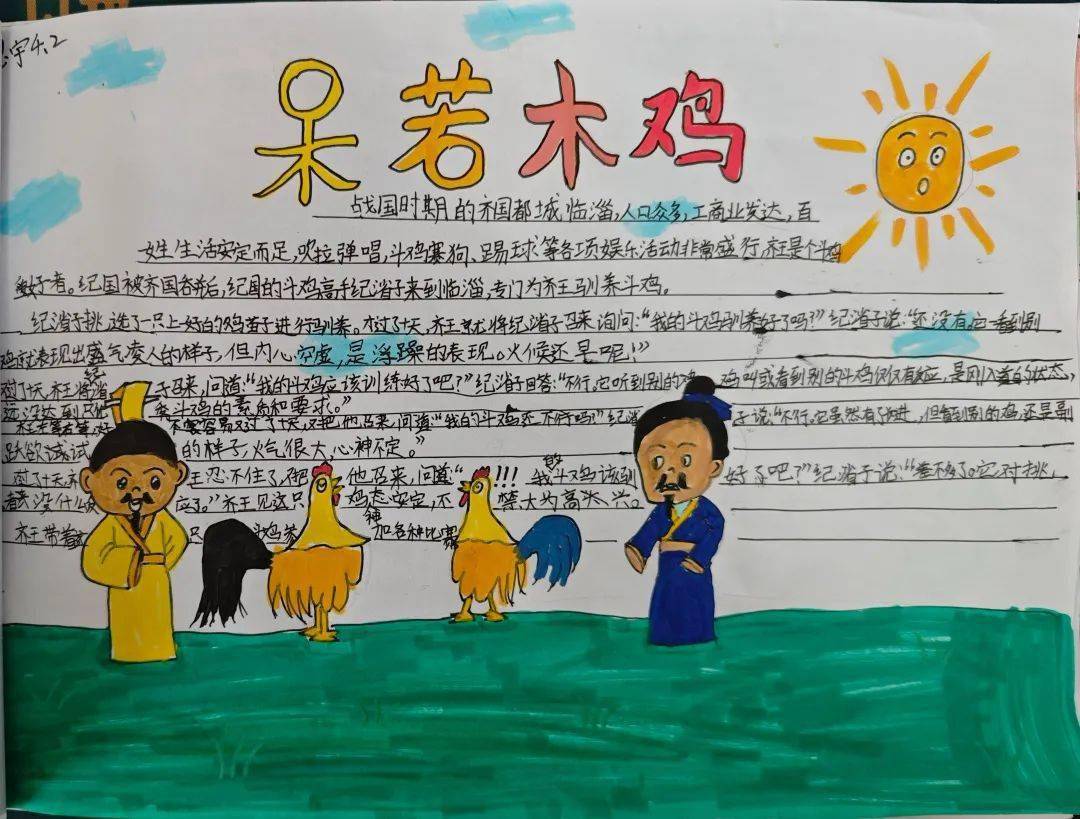 宇轩2
呆若木鸡
战国时期的齐国都城临淄,人口众多,工商业发达,百
姓生活安定而足,吹拉弹唱,斗鸡赛狗、踢球等各项娱乐活动非常盛行,齐王是个斗鸡
好者。纪国被齐国吞并后,纪国的斗鸡高手纪渻子来到临淄,专门为齐王驯养斗鸡。
纪渻子挑选了一只上好的鸡苗子进行驯养。才过了十天,齐王就将纪渻子召来询问:“我的斗鸡驯养好了吗?”纪渻子说:“还没有,它一看到别
鸡就表现出盛气凌人的样子,但内心空虚,是浮躁的表现。火候还早呢!”
过了十天,齐王将渻纪子召来,问道:“我的斗鸡应该训练好了吧?”纪渻子回答:“不行,它听到别的鸡 鸡叫或看到别的斗鸡仅仅有反应,是刚入道的状态,
远没达到 斗鸡的素质和要求。”
不容易又过了十天,又把他召来,问道“我的斗鸡还不行吗?”纪渻 子说:“不行,它虽然有了改进,但看到别的鸡,还是副
跃欲试 的样子,火气很大,心神不定。”
过了十天,齐 王忍不住了,把 他召来,问道“ !!! 我的斗鸡该驯 好了吧?”纪渻子说:“差不多了。它对挑
者没什么 应了。”齐王见这只 鸡态安定,不 等大为高兴。
齐王带着 只 斗鸡 加各种比赛